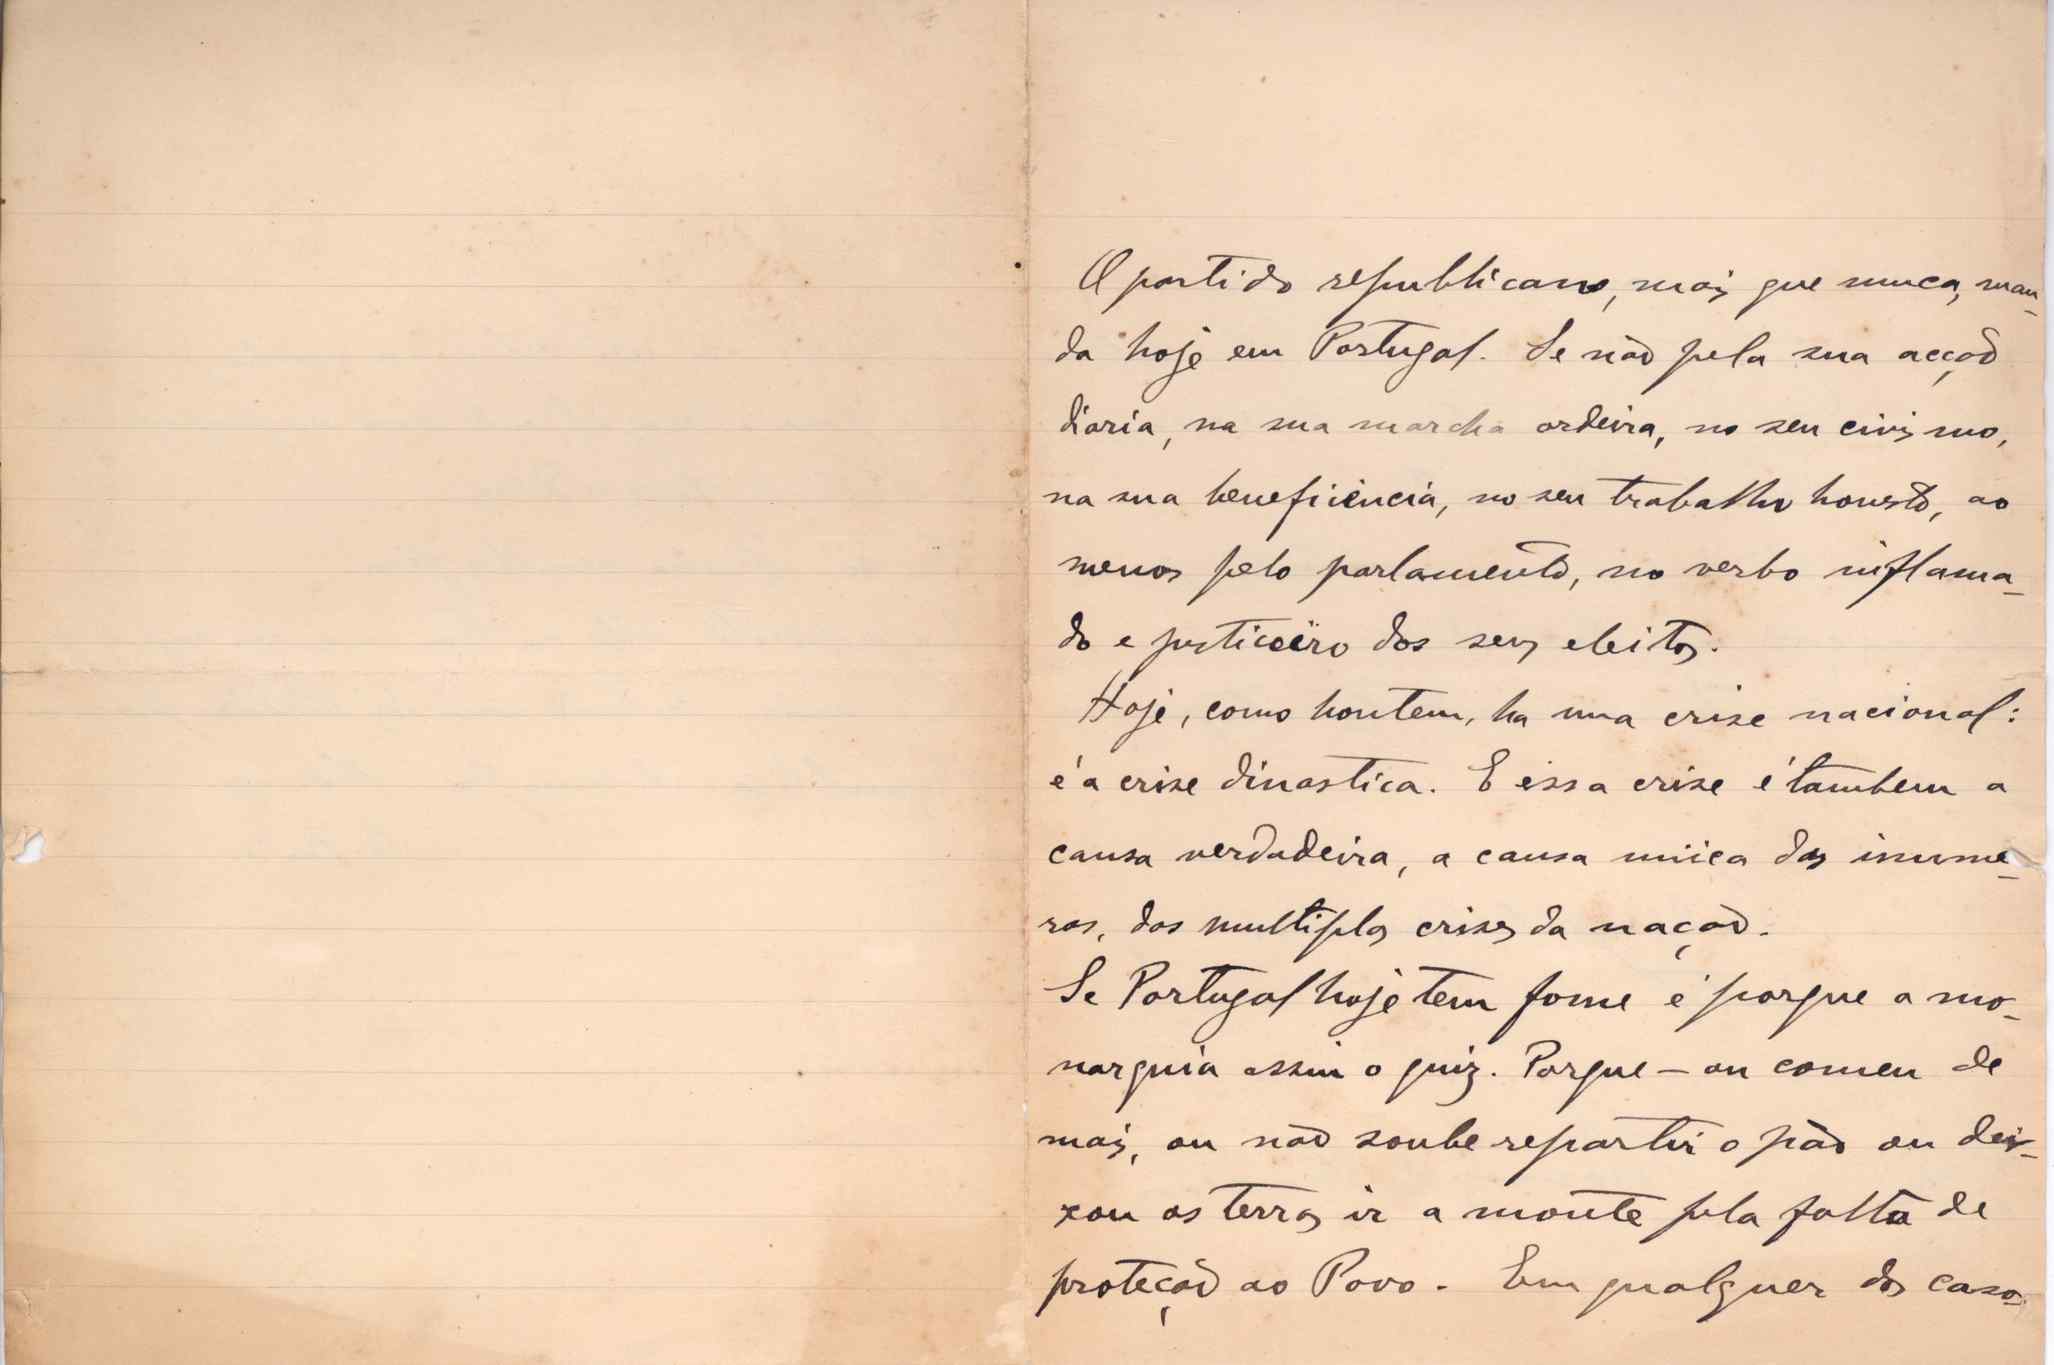 O partido republicano, mais que nunca, man-
da hoje em Portugal. Se não pela sua acção
diaria, na sua marcha ordeira, no seu civismo,
na sua beneficiencia, no seu trabalho honesto, ao
menos pelo parlamento, no verbo inflama-
do e justiceiro dos seus eleitos.
Hoje, como hontem, ha uma crise nacional:
é a crise dinastica. E essa crise é tambem a
causa verdadeira, a causa unica das inume-
ras, das multiplas crises da nação.
Se Portugal hoje tem fome é porque a mo-
narquia assim o quiz. Porque – ou comeu de
mais, ou não soube repartir o pão ou dei-
xou as terras ir a monte pela falta de
proteção ao Povo. Em qualquer dos casos